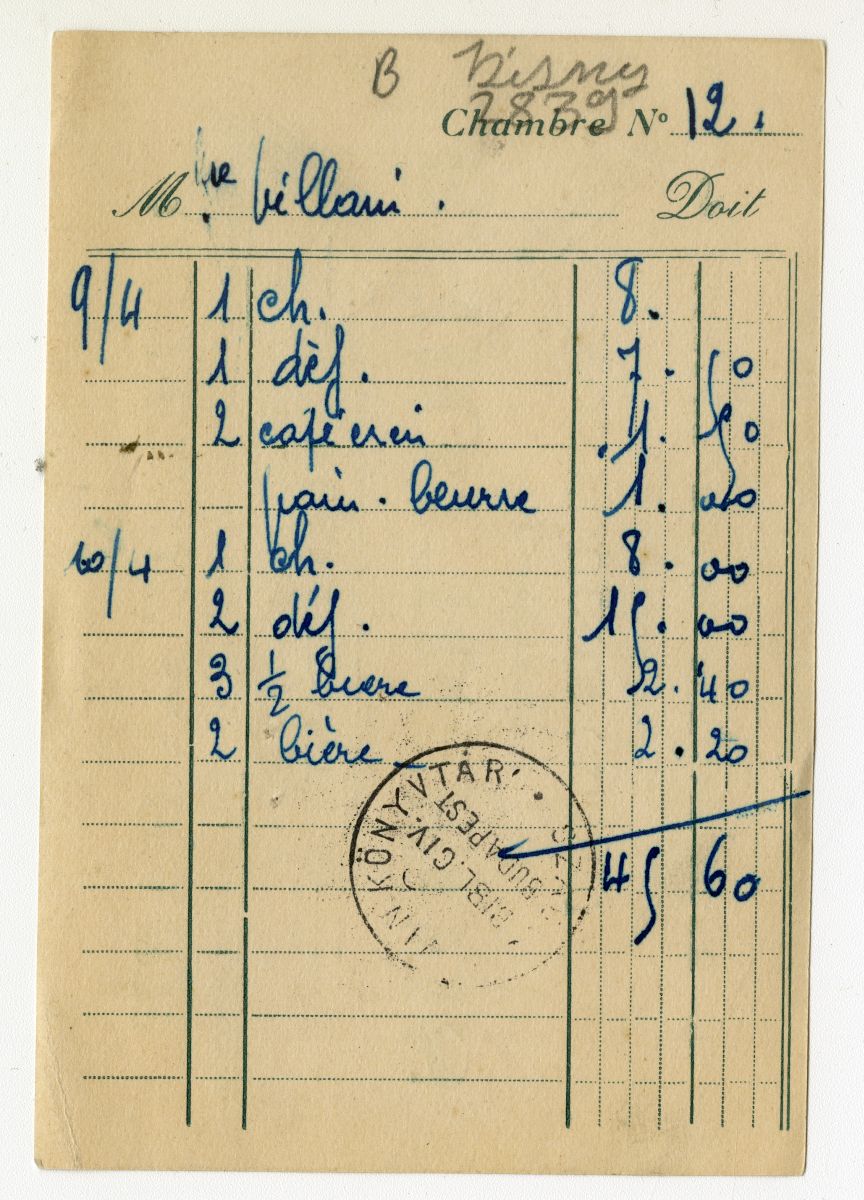 B
2839
Chambre Nº 12.
Mme Villani. Doit
9/4 1 ch. 8.
1 déj. 7. 50
2 café crem 1. 50
pain. beurre 1. 00
10/4 1 ch. 8. 00
2 déj. 15. 00
3 1/2 biere 2. 40
2 bière 2. 20
45 60
KÖNYVTÁR
BIBL. CIV.
BUDAPEST